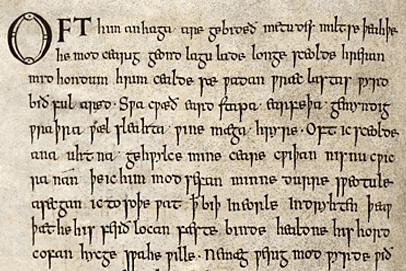 OFT him anhaga are gebideð metudes miltse þeah þe
he mod cearig geond lagu lade longe sceolde hreran
mid hondum hrim cealde sæ wadan wræc lastas wyrd
bið ful aræd · Swa cwæð eard stapa earfeþa gemyndig
wraþra wæl sleahta · wine mæga hryre · Oft ic sceolde
ana uhtna gehwylce mine ceare cwiþan nis nu cwic
ra nan þe ic him mod sefan minne durre sweotule
asecgan ic to soþe wat · þ biþ in eorle indryhten þeaw
þæt he his ferð locan fæste binde healdne his hord
cofan hycge swa he wille · Ne mæg werig mod wyrde wið